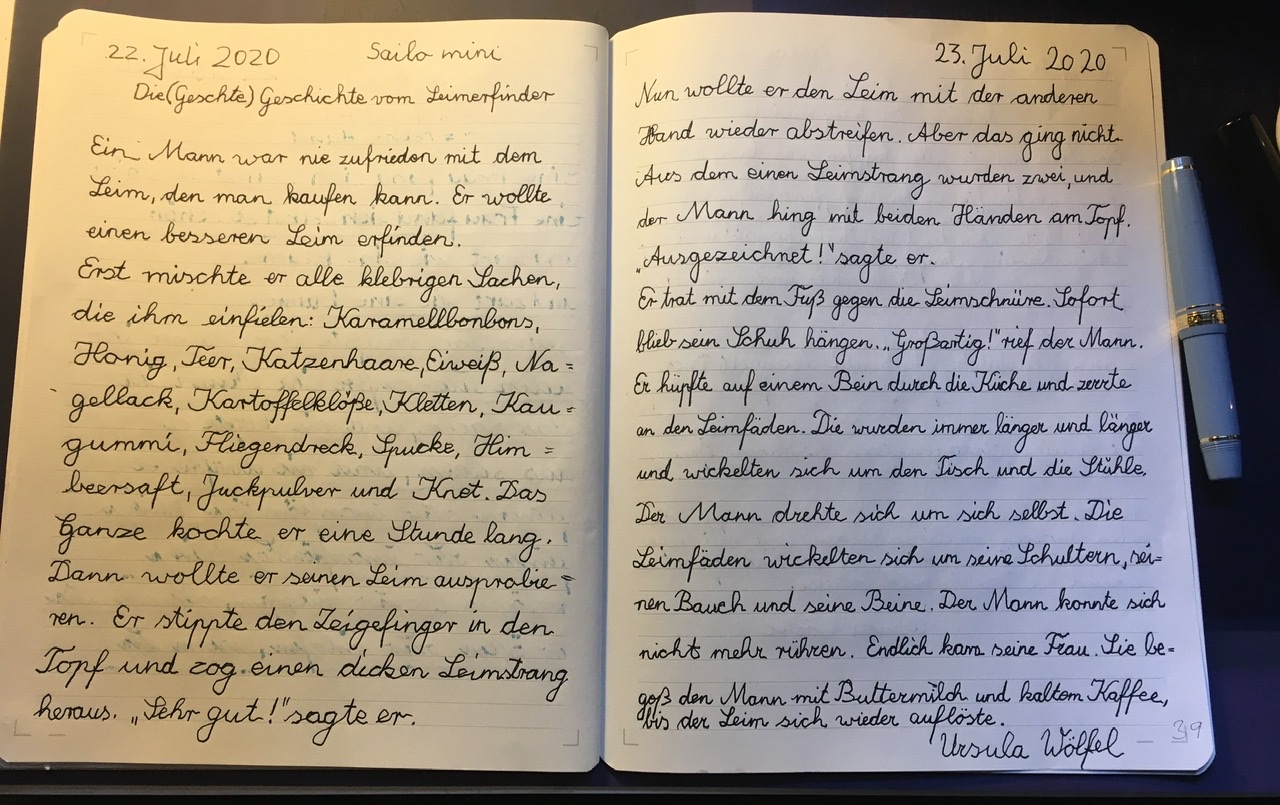 22. Juli 2020 Sailo mini
Die (Geschte) Geschichte vom Leimerfinder
Ein Mann war nie zufrieden mit dem
Leim, den man kaufen kann. Er wollte
einen besseren Leim erfinden.
Erst mischte er alle klebrigen Sachen,
die ihm einfielen: Karamellbonbons,
Honig, Teer, Katzenhaare, Eiweiß, Na=
gellack, Kartoffelklöße, Kletten, Kau=
gummi, Fliegendreck, Spucke, Him=
beersaft, Juckpulver und Knet. Das
Ganze kochte er eine Stunde lang.
Dann wollte er seinen Leim ausprobie=
ren. Er stippte den Zeigefinger in den
Topf und zog einen dicken Leimstrang
heraus. „Sehr gut!" sagte er.
23. Juli 2020
Nun wollte er den Leim mit der anderen
Hand wieder abstreifen. Aber das ging nicht.
Aus dem einen Leimstrang wurden zwei, und
der Mann hing mit beiden Händen am Topf.
„Ausgezeichnet!" sagte er.
Er trat mit dem Fuß gegen die Leimschnüre. Sofort
blieb sein Schuh hängen. „Großartig!" rief der Mann.
Er hüpfte auf einem Bein durch die Küche und zerrte
an den Leimfäden. Die wurden immer länger und länger
und wickelten sich um den Tisch und die Stühle.
Der Mann drehte sich um sich selbst. Die
Leimfäden wickelten sich um seine Schultern, sei=
nen Bauch und seine Beine. Der Mann konnte sich
nicht mehr rühren. Endlich kam seine Frau. Sie be=
goß den Mann mit Buttermilch und kaltem Kaffee,
bis der Leim sich wieder auflöste.
Ursula Wölfel — 319